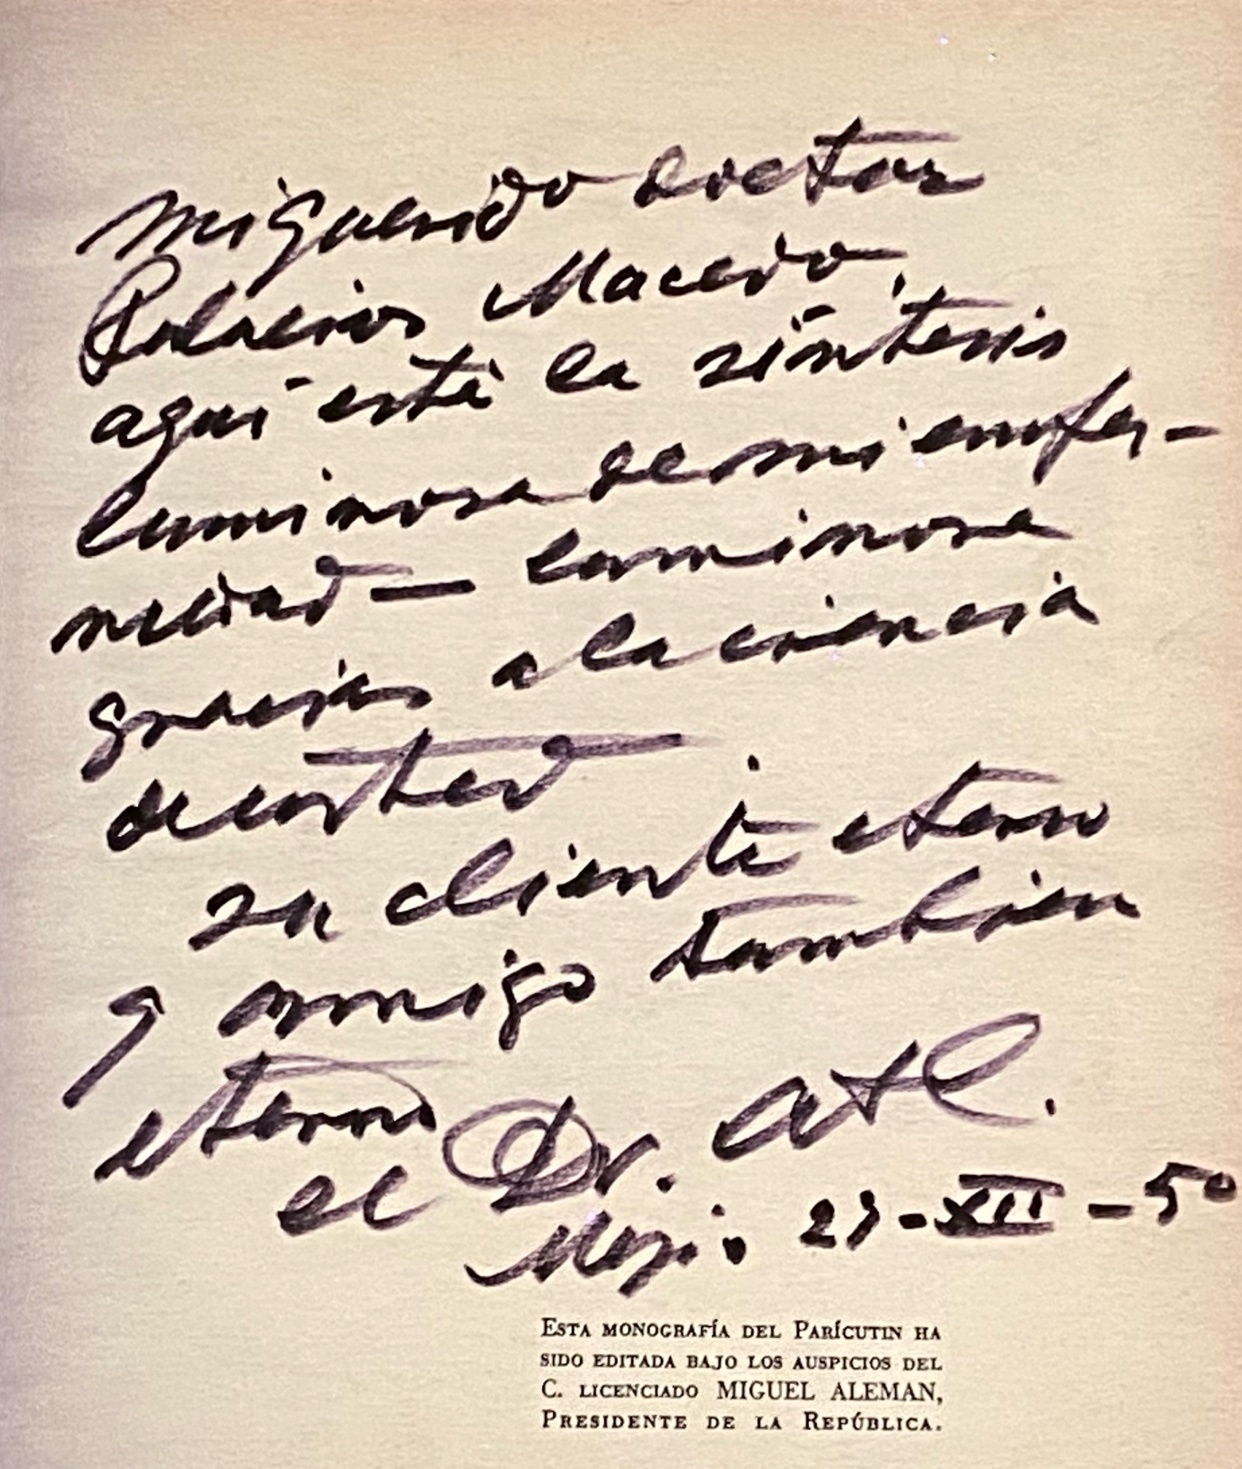 Mi querido doctor
Palacios Macedo,
aquí está la síntesis
luminosa de mi enfer-
medad — luminosa
gracias a la ciencia
de usted.
su cliente eterno
y amigo también
eterno
el Dr. Atl.
Méxi. 23-XII-50
ESTA MONOGRAFÍA DEL PARÍCUTIN HA
SIDO EDITADA BAJO LOS AUSPICIOS DEL
C. LICENCIADO MIGUEL ALEMAN,
PRESIDENTE DE LA REPÚBLICA.